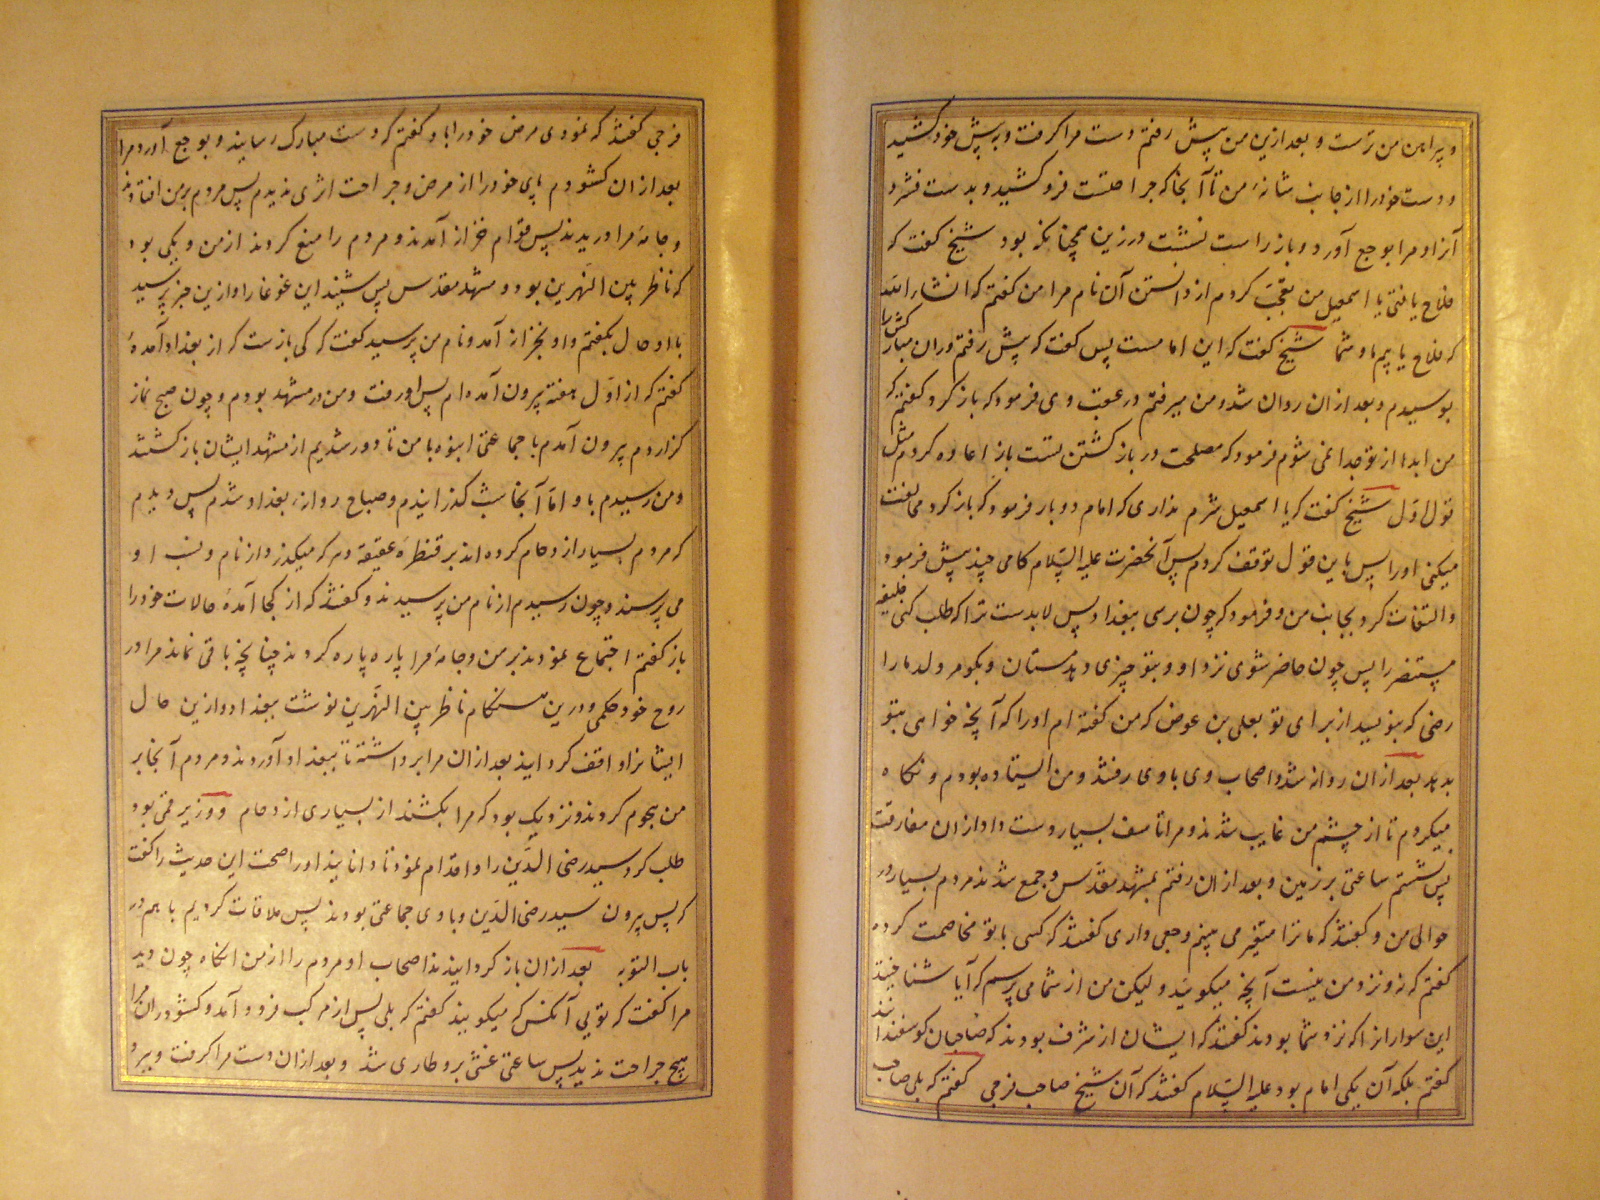 و پیراهن من ترست و بعد ازین من پیش رفتم دست مرا کرفت و برپش خود کشید
و دست خود را از جانب شانهٔ من تا آنجا که جراحتست فرو کشید و بدست فشرد
آنرا و مرا بوجع آورد و باز راست نشست در زین همچنانکه بود شیخ کفت که
فلاح یافتی یا اسمعیل من تعجّب کردم از دانستن آن نام مرا من کفتم که انشاء الله
که فلاح یابیم ما و شما شیخ کفت که این امامست پس کفت که پیش رفتم و ران مبارکش را
بوسیدم و بعد ازان روان شد و من میرفتم در عقب وی فرمود که باز کرد کفتم که
من ابدا از تو جدا نمی شوم فرمود که مصلحت در باز کشتن تست باز اعاده کردم مثل
قول اوّل شیخ کفت که یا اسمعیل شرم نداری که امام دو بار فرمود که باز کرد مخالفت
میکنی او را پس باین قول توقف کردم پس آنحضرت علیه السّلام کامی چند پیش فرمود
و التفات کرد بجانب من و فرمود که چون برسی ببغداد پس لابدست ترا که طلب کند خلیفه
مستنصر را پس چون حاضر شوی نزد او و بتو چیزی دهد مستان و بکو مر ولد ما را
رضی که بنویسد از برای تو بعلی بن عوض که من کفته ام او را که آنچه خواهی بتو
بدهد بعد ازان روانه شد و اصحاب وی با وی رفتند و من ایستاده بودم و نکاه
میکردم تا از چشم من غایب شدند و مرا تاسف بسیار دست داد ازان مفارقت
پس نشستم ساعتی بر زمین و بعد ازان رفتم بمشهد مقدّس و جمع شدند مردم بسیار در
حوالی من و کفتند که ما ترا متغیّر می بینم وجعی داری کفتند که کسی با تو مخاصمت کرده
کفتم که نه و نزد من نیست آنچه میکوئید و لیکن من از شما می پرسم که آیا شناختید
این سوارانرا که نزد شما بودند کفتند که ایشان از شرف بودند که صاحبان کوسفندانند
کفتم بلکه آن یکی امام بود علیه السّلام کفتند که آن شیخ صاحب فرجی کفتم که بلی صاحب
فرجی کفتند که نمودی مرض خود را باو کفتم که دست مبارک رسانید و بوجع آورد مرا
بعد ازان کشودم پای خود را از مرض و جراحت اثری ندیدم پس مردم بر من افتادند
و جامهٔ مرا دریدند پس قوام خزانه آمدند و مردم را منع کردند از من و یکی بود
که ناظر بین النهرین بود در مشهد مقدس پس شنید این غوغا را و ازین خبر پرسید
با او حال بکفتم و او بخزانه آمد و نام من پرسید کفت که کی بازست که از بغداد آمدهٔ
کفتم که از اوّل هفته بیرون آمده ام پس او رفت و من در مشهد بودم و چون صبح نماز
کزاردم بیرون آمدم با جماعتی انبوه با من تا دور شدیم از مشهد ایشان باز کشتند
و من رسیدم باوانا آنجا شب کذرانیدم و صباح روانهٔ بغداد شدم پس دیدم
که مردم بسیار ازدحام کرده اند بر قنطرهٔ عتیقه و هر که میکذرد از نام و نسب او
می پرسند و چون رسیدم از نام من پرسیدند و کفتند که از کجا آمدهٔ حالات خود را
باز کفتم اجتماع نمودند بر من و جامهٔ مرا پاره پاره کردند چنانچه باقی نماند مرا در
روح خود حکمی و درین هنکام ناظر بین النهرین نوشت ببغداد و ازین حال
ایشانرا واقف کردانید بعد ازان مرا برداشته تا ببغداد آوردند و مردم آنجا بر
من هجوم کردند و نزدیک بود که مرا بکشند از بسیاری ازدحام و وزیر قمی بود
طلب کرد سید رضی الدّین را و اقدام نمود تا داناند او را صحت این حدیث را کفت
که پس بیرون سید رضی الدّین و با وی جماعتی بودند پس ملاقات کردیم با هم در
باب النوبه بعد ازان باز کردانیدند اصحاب او مردم را از من انکاه چون دید
مرا کفت که تویی آنکس که میکویند کفتم که بلی پس از مرکب فرود آمد و کشود ران مرا
هیچ جراحت ندید پس ساعتی غشی برو طاری شد و بعد ازان دست مرا کرفت و ببرد